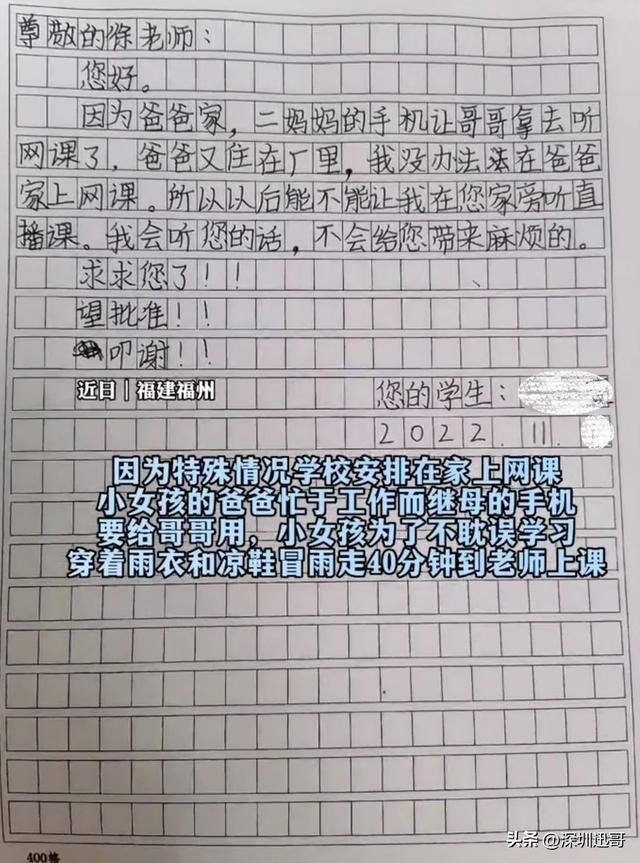 尊敬的徐老师：
您好。
因为爸爸家，二妈妈的手机让哥哥拿去听
网课了，爸爸又住在厂里，我没办法法在爸爸
家上网课。所以以后能不能让我在您家旁听直
播课。我会听您的话，不会给您带来麻烦的。
求求您了！！
望批准！！
叩谢！！
近日｜福建福州
您的学生：
2022.11.
因为特殊情况学校安排在家上网课
小女孩的爸爸忙于工作而继母的手机
要给哥哥用，小女孩为了不耽误学习
穿着雨衣和凉鞋冒雨走40分钟到老师上课
400格
头条 @深圳迅哥